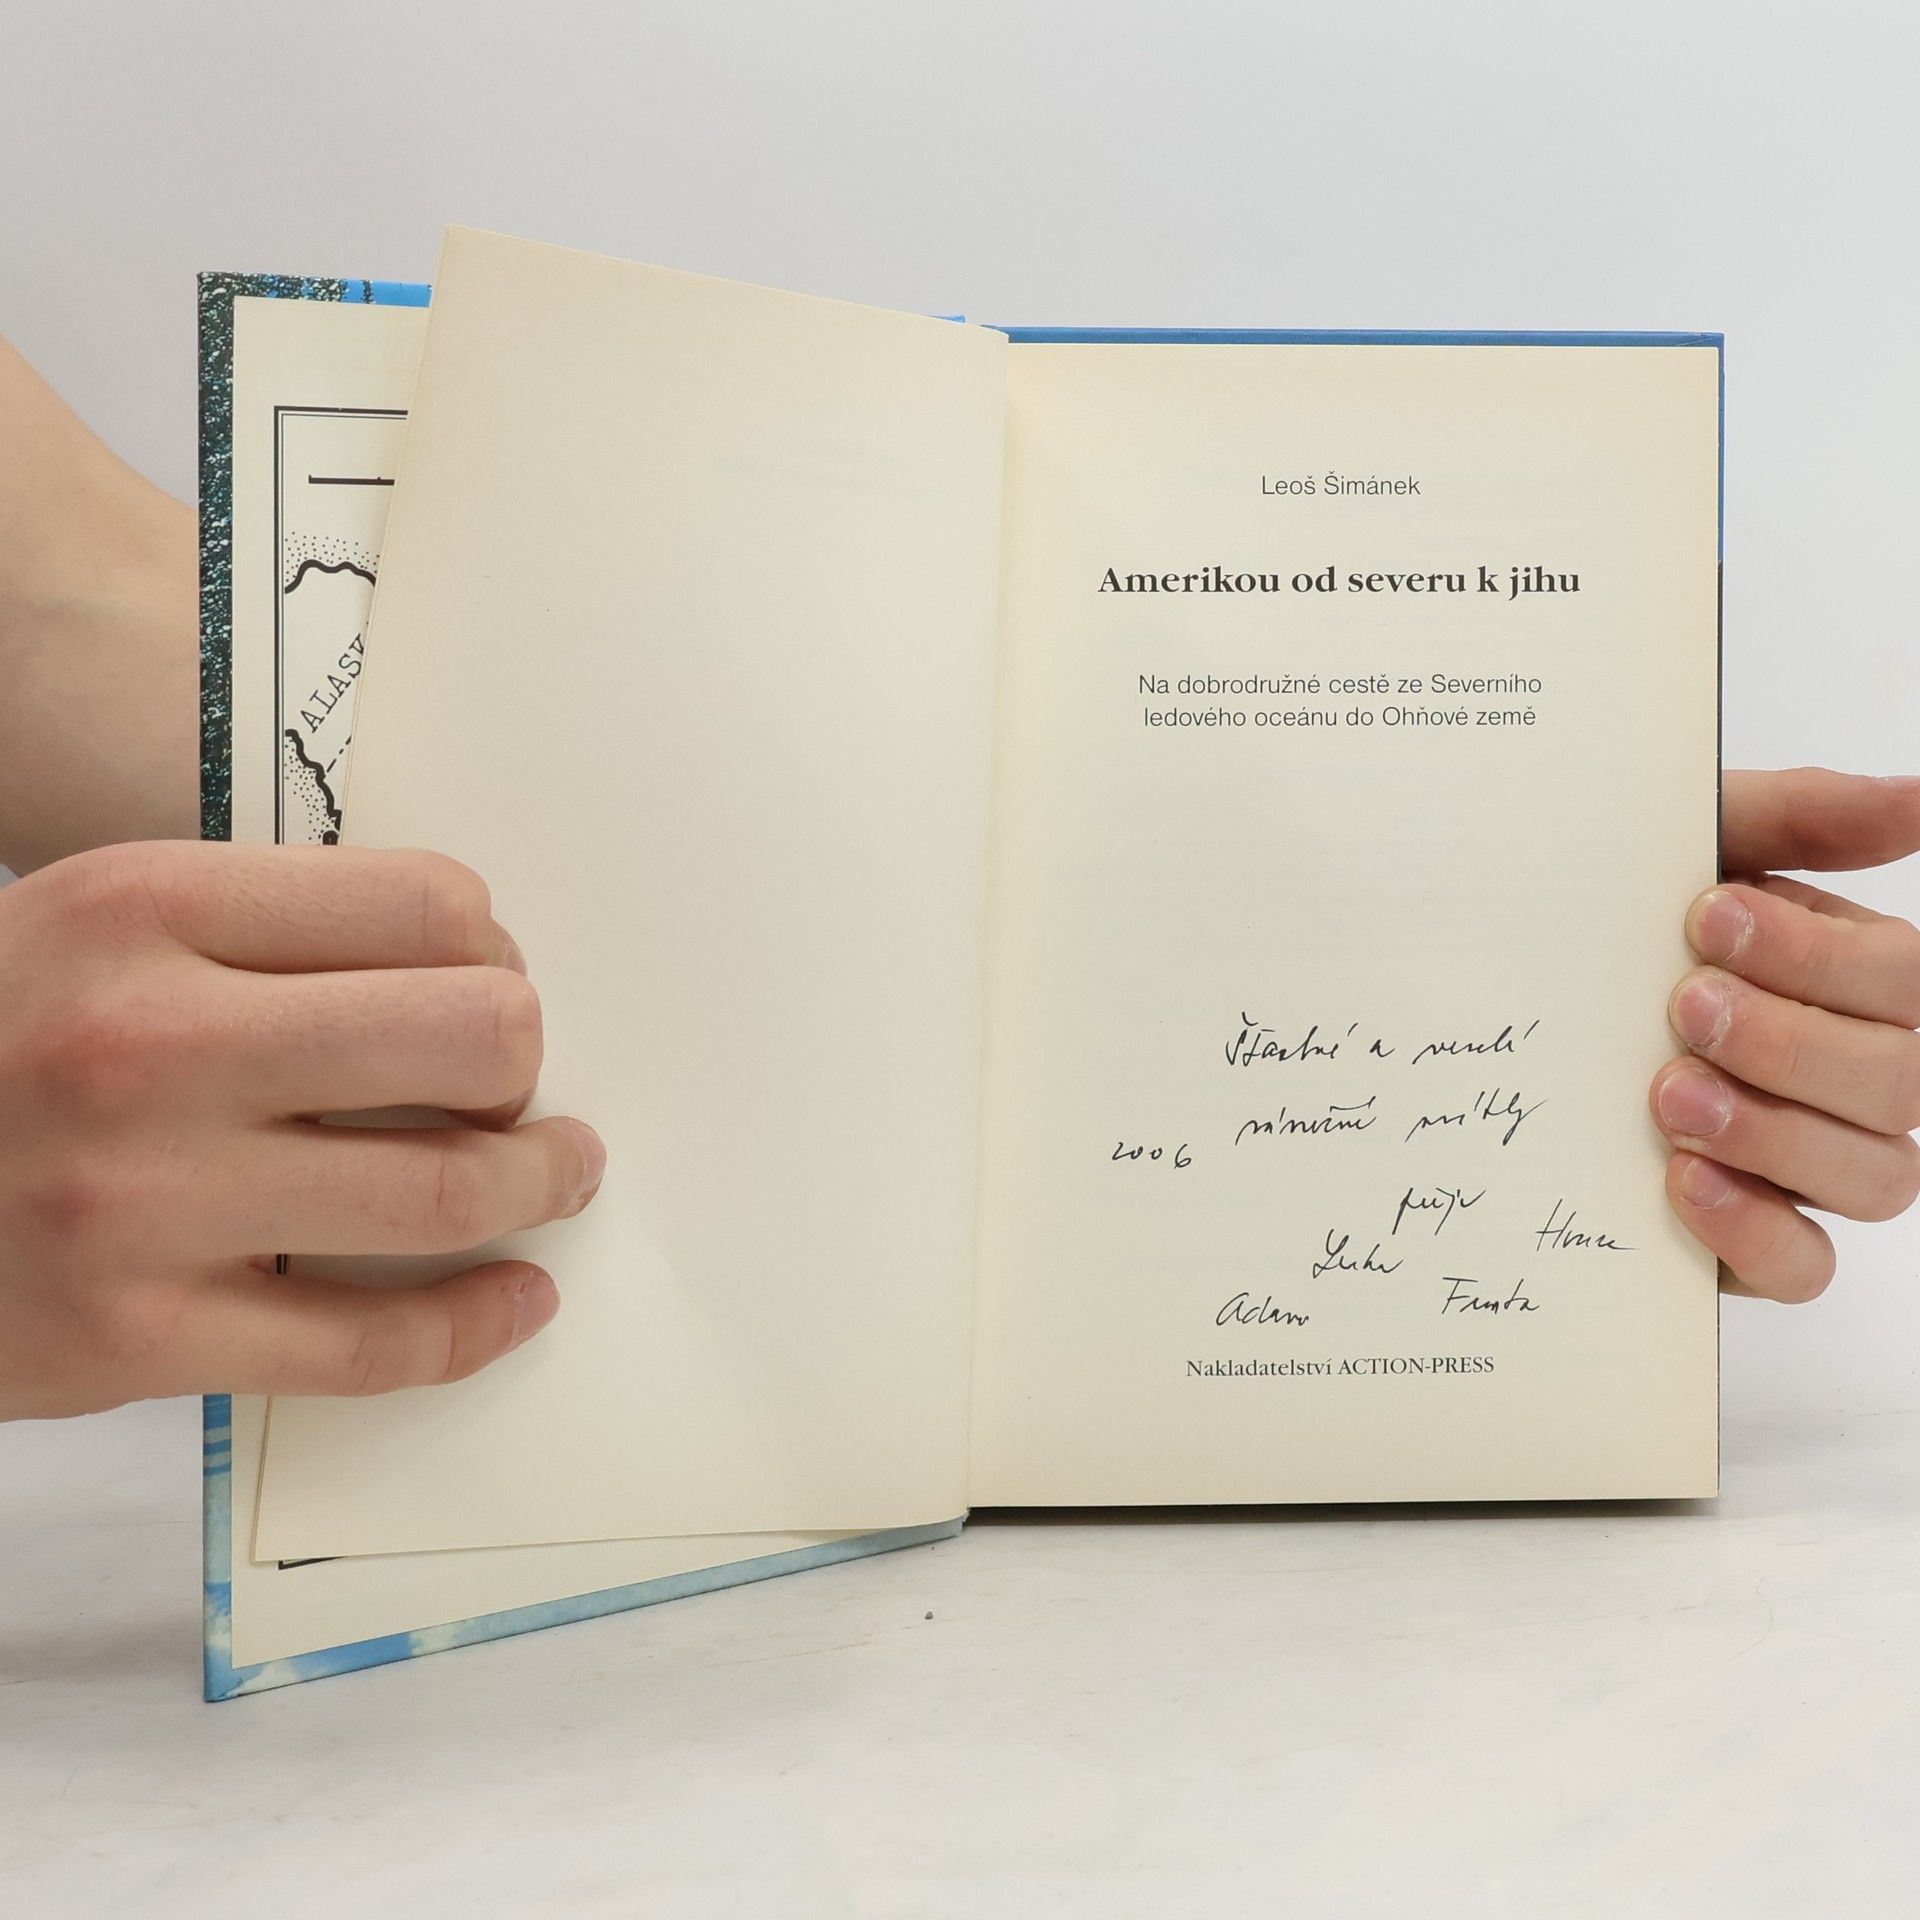 ALASK
Leoš Šimánek
Amerikou od severu k jihu
Na dobrodružné cestě ze Severního
ledového oceánu do Ohňové země
Šťastné a veselé
vánoční svátky
2006
přeje
Honza
Lenka
Adam
Frunta
Nakladatelství ACTION-PRESS